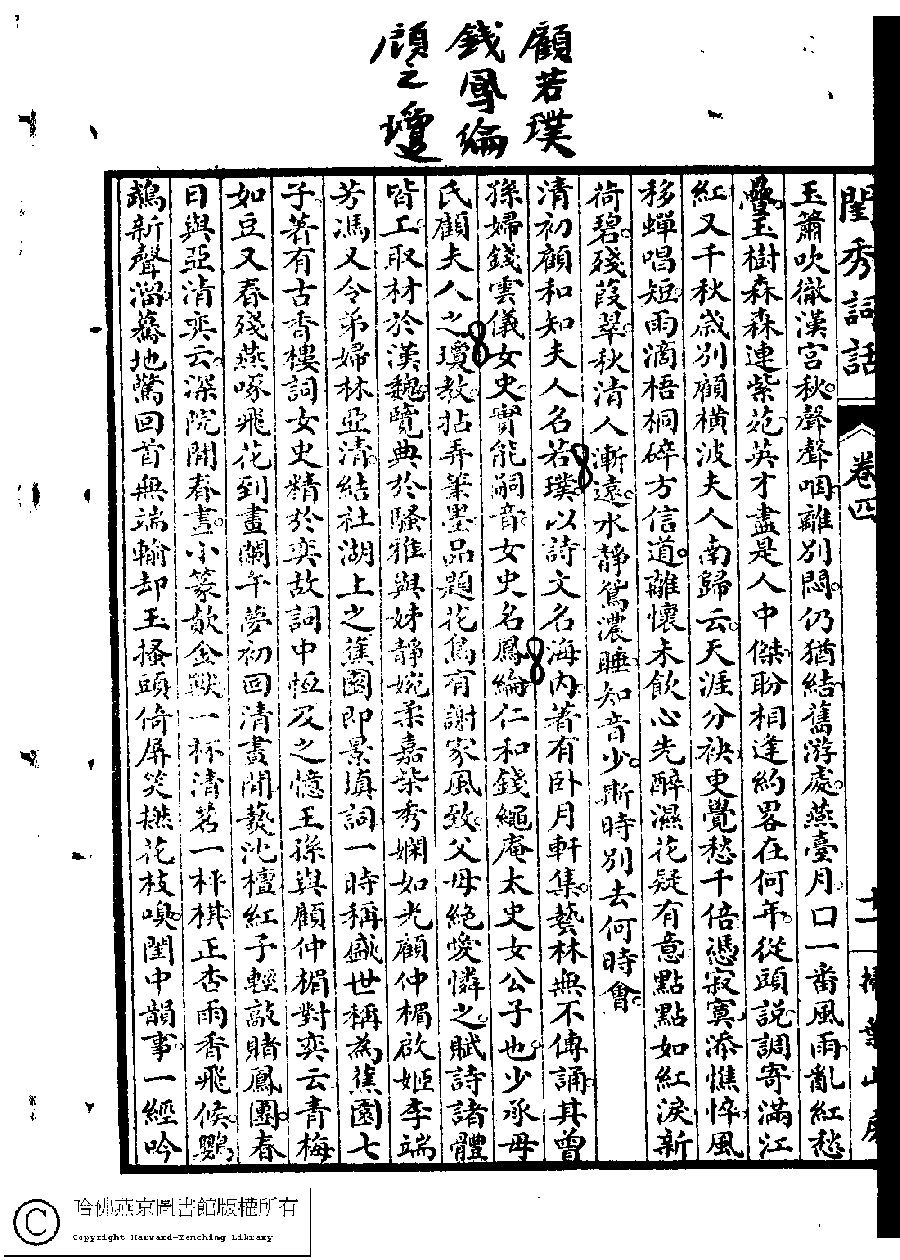 顧若璞
錢鳳綸
顧之瓊
閨秀詞話
卷四
十一
掃葉山房
玉簫吹徹漢宮秋聲聲咽離別悶仍猶結舊游處燕臺月口一番風雨亂紅愁
疊玉樹森森連紫苑英才盡是人中傑盼相逢約畧在何年從頭說調寄滿江
紅又千秋歲別顧橫波夫人南歸云天涯分袂更覺愁千倍憑寂寞添憔悴風
移蟬唱短雨滴梧桐碎方信道離懷未飲心先醉濕花疑有意點點如紅淚新
荷碧殘葭翠秋清人漸遠水靜鴛濃睡知音少斯時別去何時會
清初顧和知夫人名若璞以詩文名海內著有卧月軒集藝林無不傳誦其曾
孫婦錢雲儀女史實能嗣音女史名鳳綸仁和錢繩庵太史女公子也少承母
氏顧夫人之瓊教拈弄筆墨品題花鳥有謝家風致父母絕愛憐之賦詩諸體
皆工取材於漢魏覽典於騷雅與姊靜婉柔嘉柴秀嫻如光顧仲楣啟姬李端
芳馮又令弟婦林亞清結社湖上之蕉園即景填詞一時稱盛世稱為蕉園七
子著有古香樓詞女史精於奕故詞中恆及之憶王孫與顧仲楣對奕云青梅
如豆又春殘燕啄飛花到畫闌午夢初回清晝閒爇沈檀紅子輕敲賭鳳團春
日與亞清奕云深院閒春晝小篆歕金獸一杯清茗一枰棋正杏雨香飛候鸚
鵡新聲溜驀地驚回首無端輸却玉搔頭倚屏笑撚花枝嗅閨中韻事一經吟
哈佛燕京圖書館版權所有
Copyright Harvard-Yenching Library